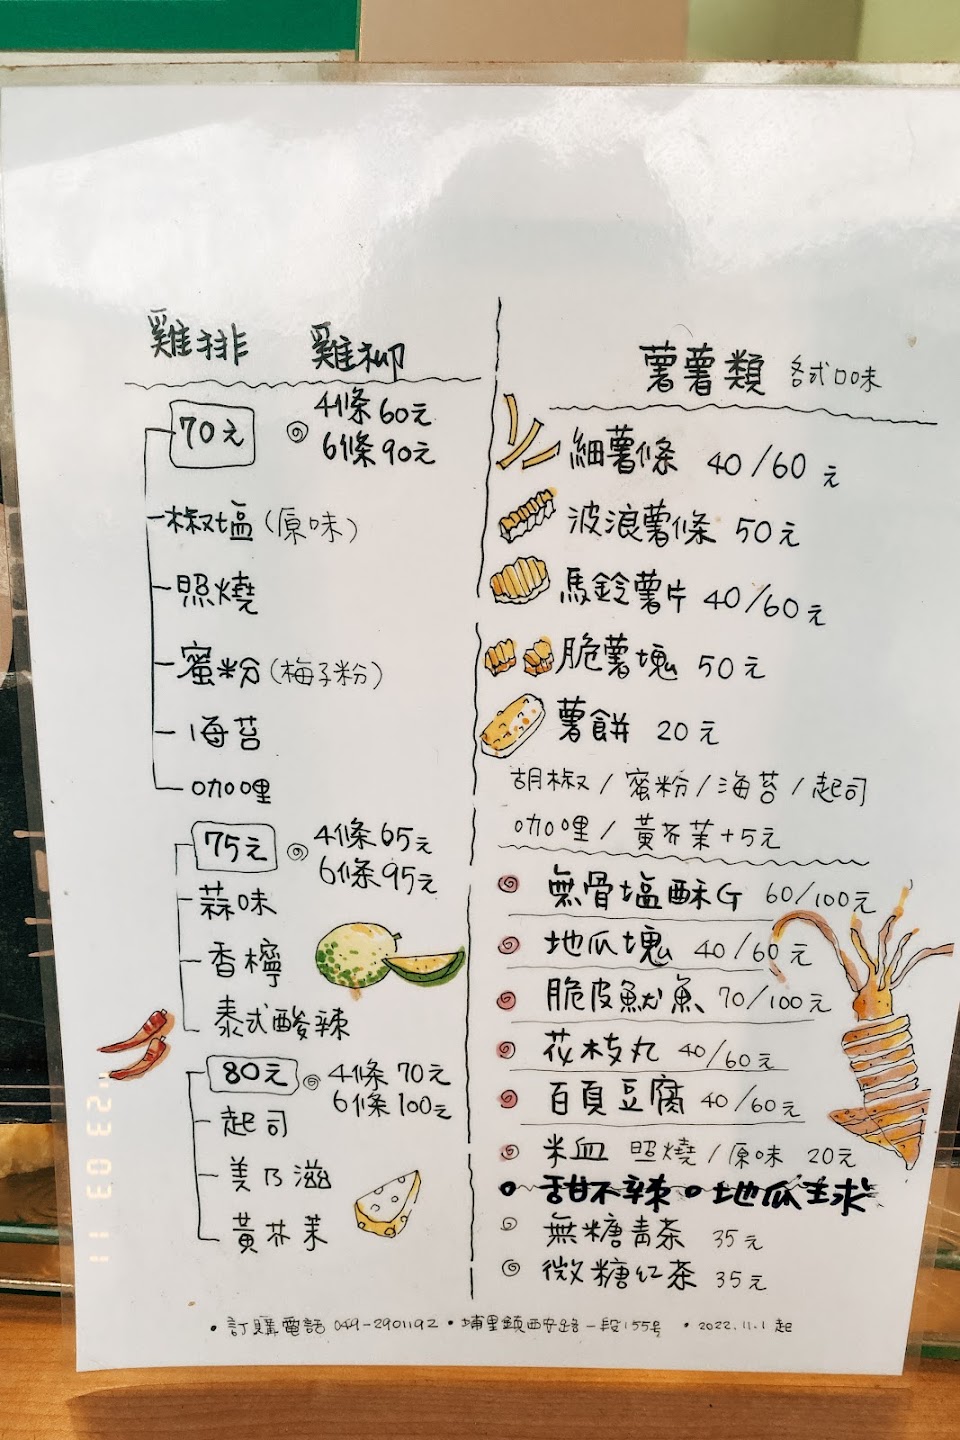 雞排 雞柳
70元 4條60元
6條90元
椒塩(原味)
照燒
蜜粉(梅子粉)
海苔
咖哩
75元 4條65元
6條95元
蒜味
香檸
泰式酸辣
80元 4條70元
6條100元
起司
美乃滋
黃芥茉
薯薯類 各式口味
細薯條 40/60元
波浪薯條 50元
馬鈴薯片 40/60元
脆薯塊 50元
薯餅 20元
胡椒/蜜粉/海苔/起司
咖哩/黃芥茉+5元
無骨塩酥G 60/100元
地瓜塊 40/60元
脆皮魷魚 70/100元
花枝丸 40/60元
百頁豆腐 40/60元
米血 照燒/原味 20元
甜不辣 地瓜球
無糖青茶 35元
微糖紅茶 35元
•訂購電話 049-2901192 •埔里鎮西安路一段155號 •2022.11.1起